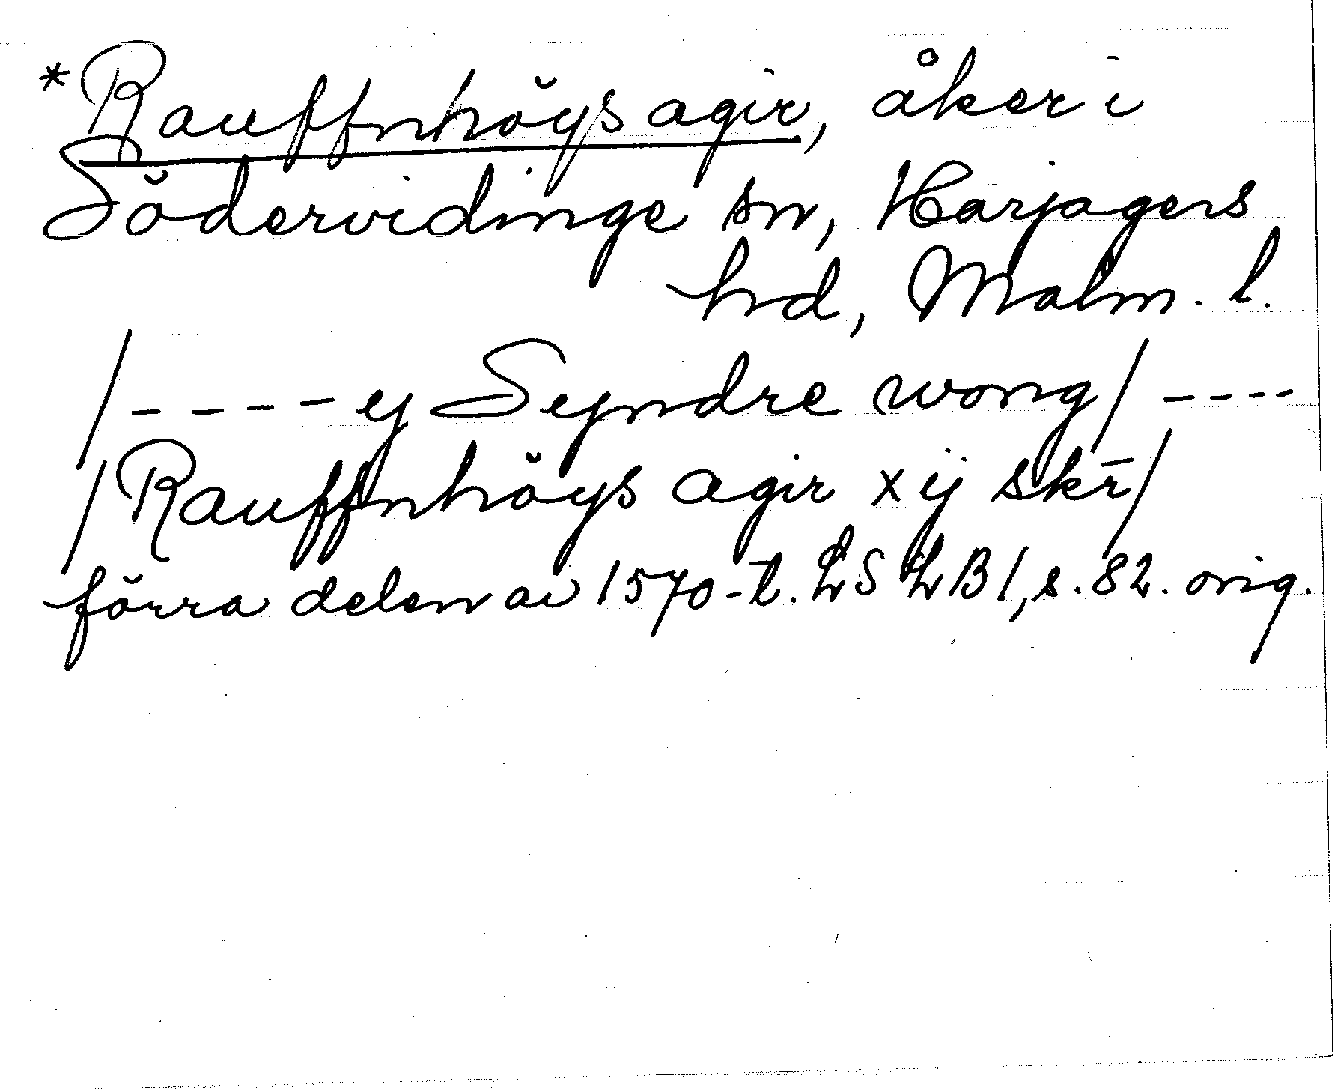 *Rauffnhöys agir, åker i
Södervidinge sn, Harjagers
hd, Malm. l.
/ - - - - ej Syndre wong / - - - -
/ Rauffnhöys agir x ij skr̄ /
förra delen av 1570-t. LS LB 1, s. 82. orig.